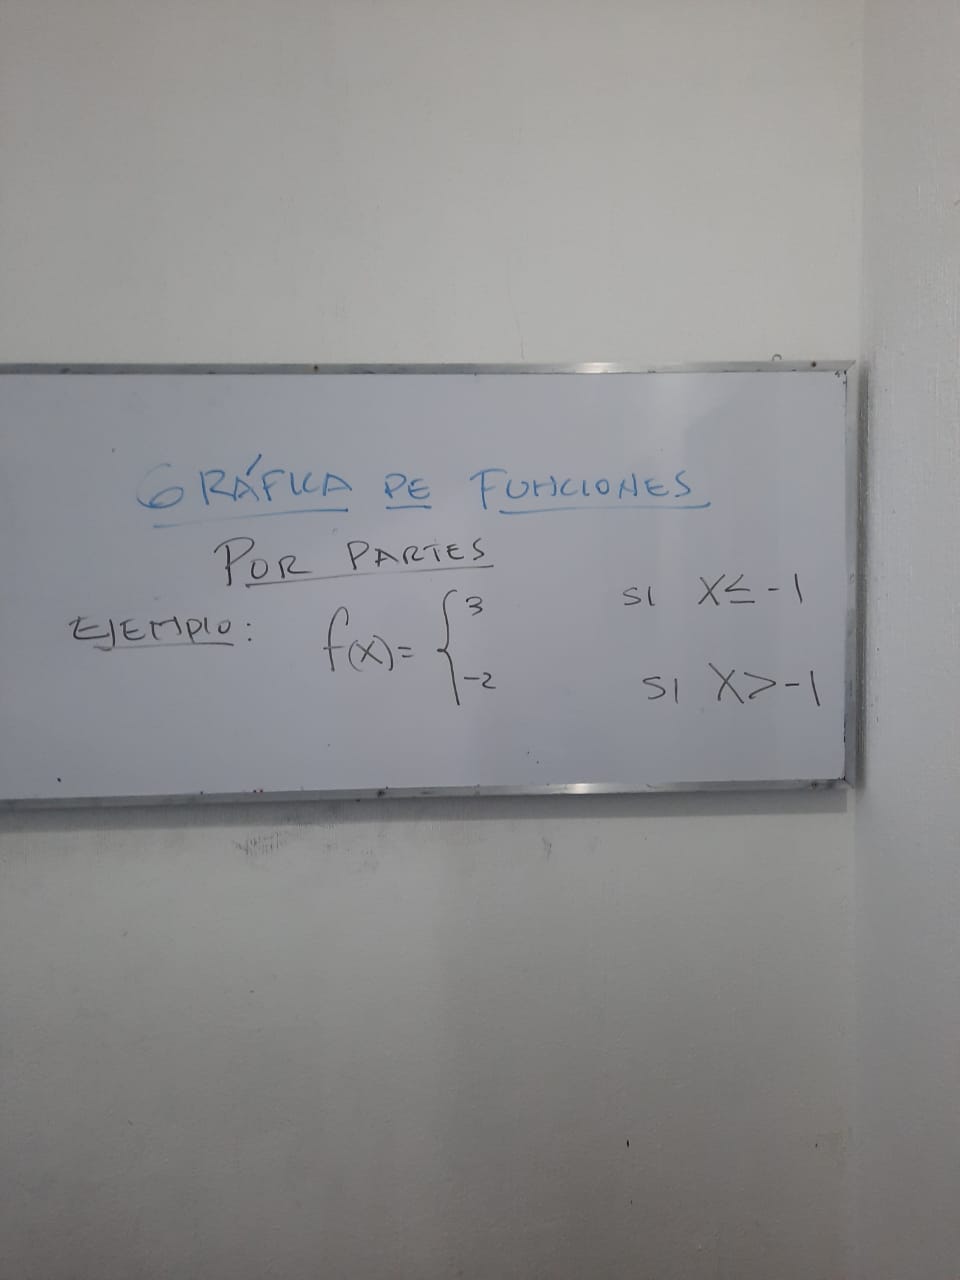 GRÁFICA DE FUNCIONES
POR PARTES
EJEMPLO: f(x)= { 3 SI X≤-1
-2 SI X>-1